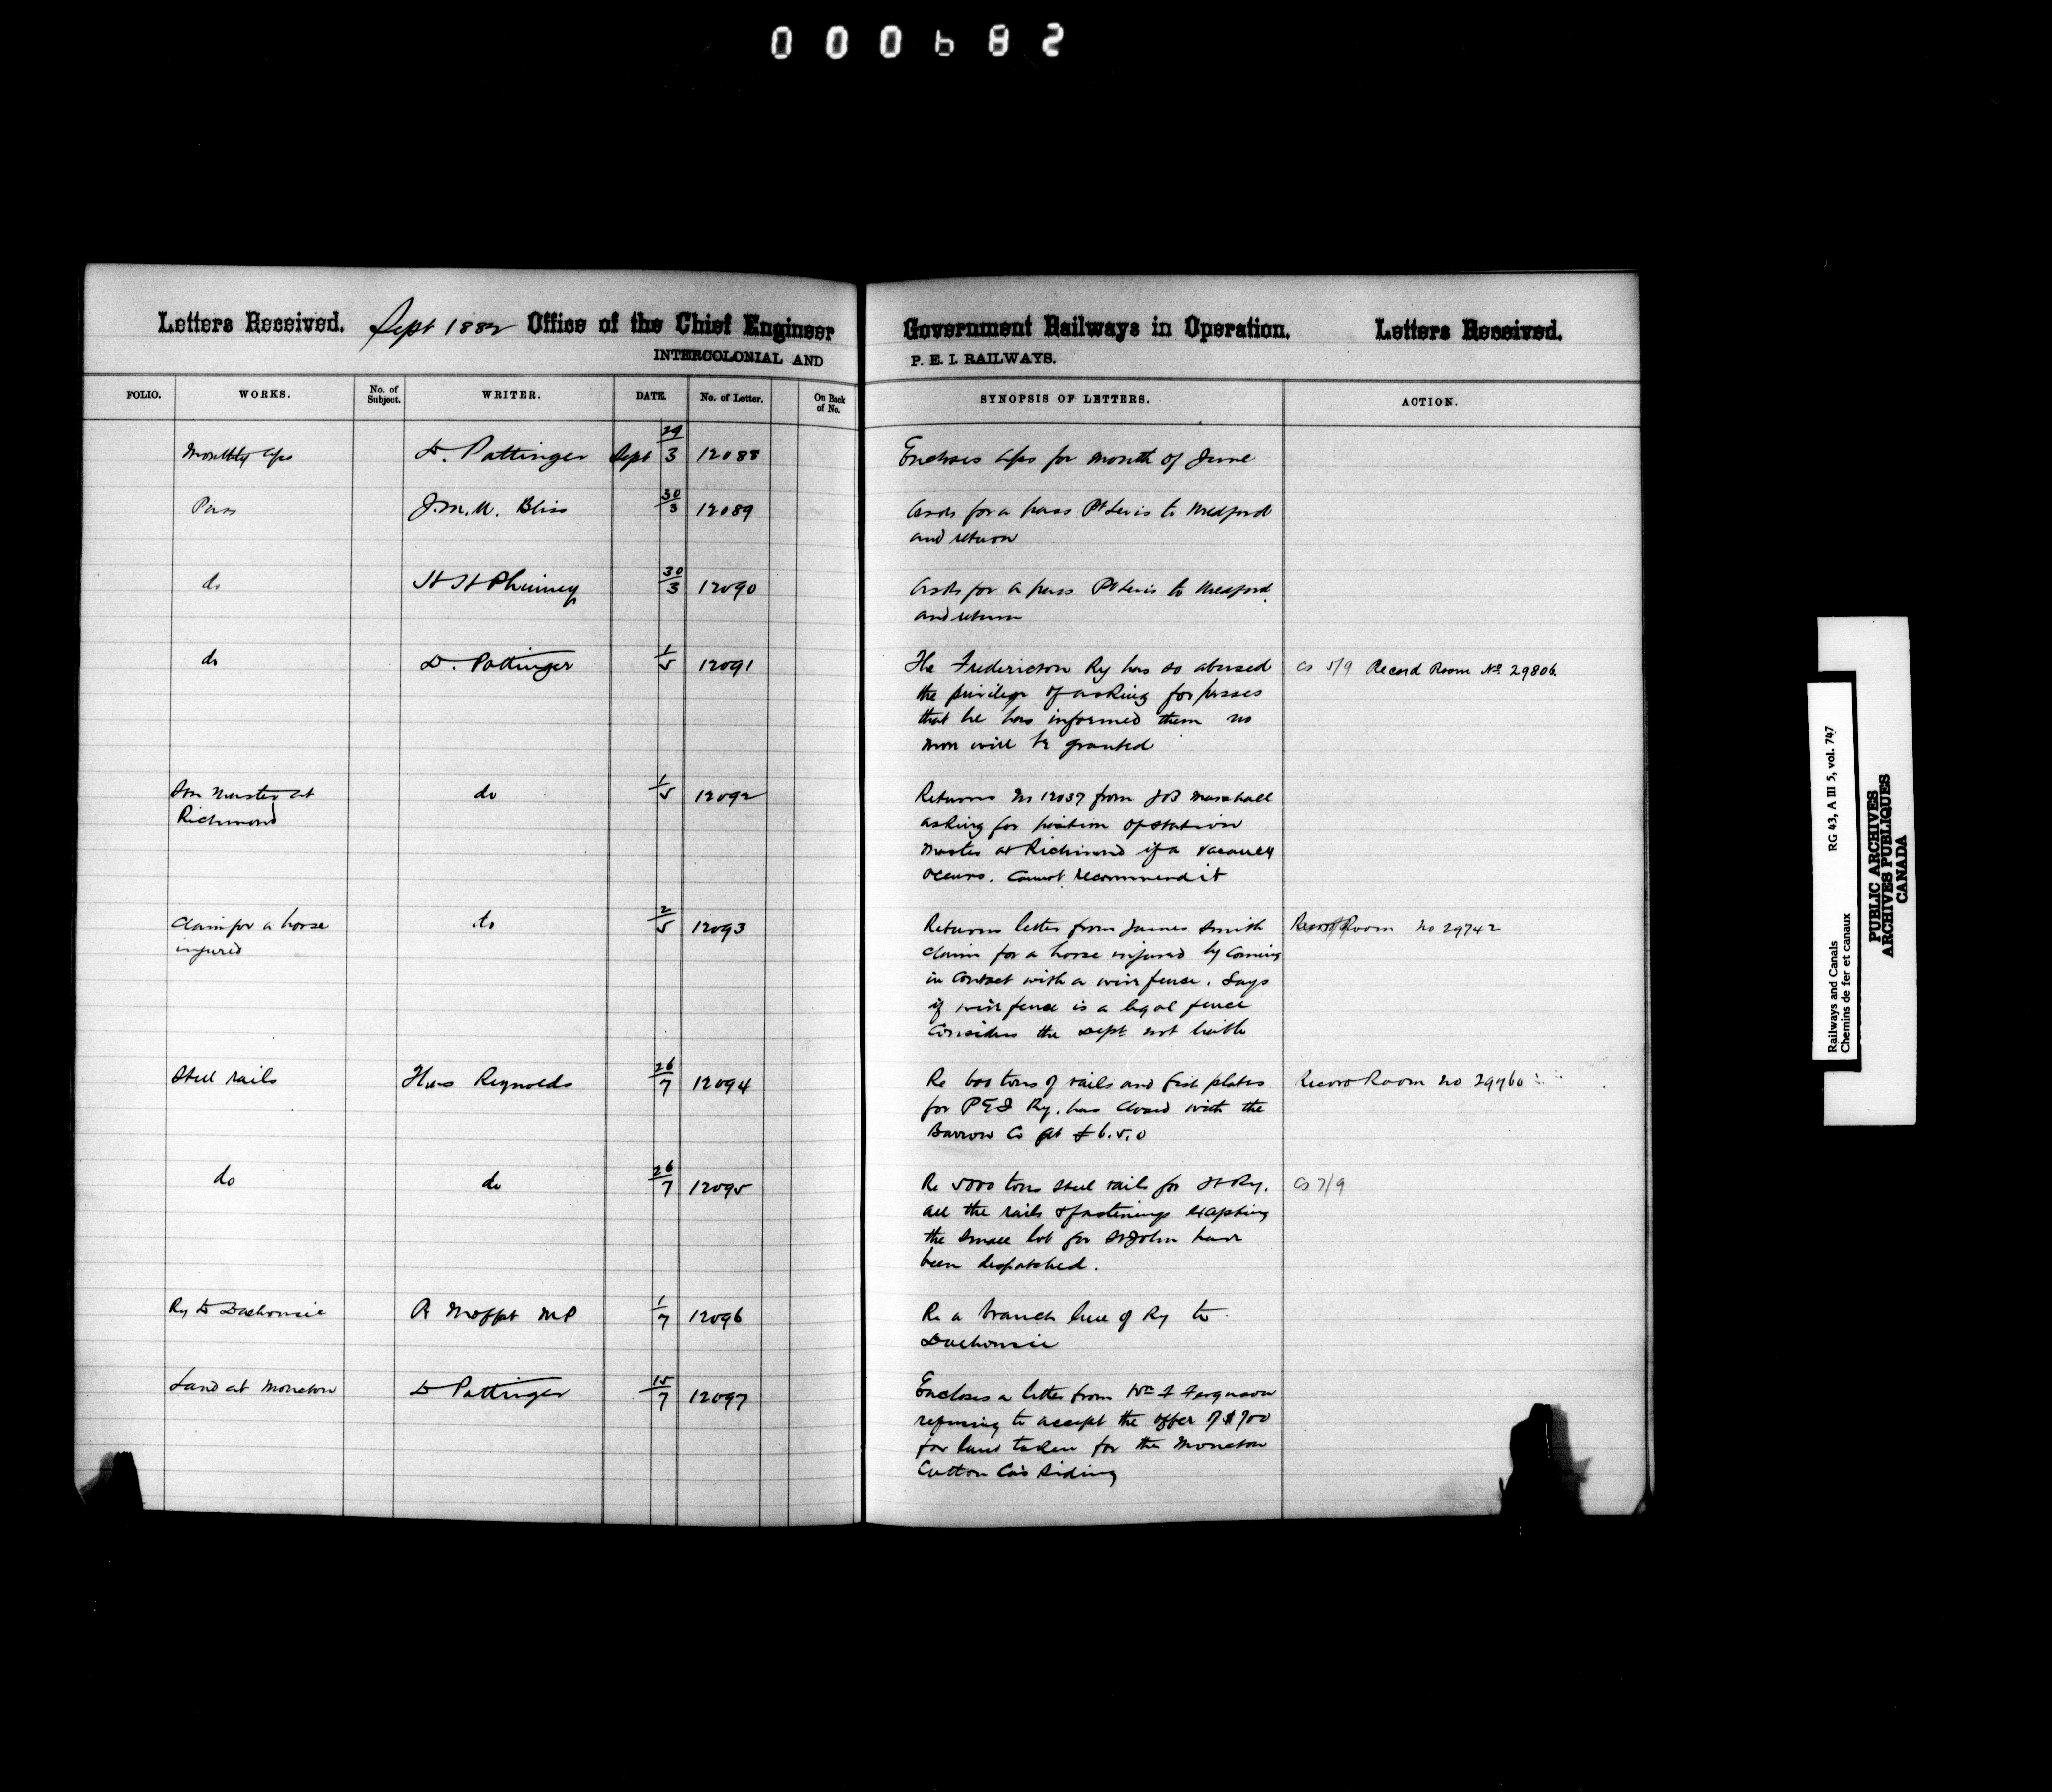 000682
Letters Received. Sept 1882 Office of the Chief Engineer
INTERCOLONIAL AND
Government Railways in Operation. Letters Received.
P. E. I. RAILWAYS.
FOLIO. WORKS. No. of Subject. WRITER. DATE. No. of Letter. On Back of No. SYNOPSIS OF LETTERS. ACTION.
Monthly a/cs D. Pottinger Sept 29/3 12088 Encloses a/cs for month of June
Pass J. M. Bliss 30/3 12089 Asks for a pass Pt Levis to Medford
and return
do H H Phinney 30/3 12090 Asks for a pass Pt Levis to Medford
and return
do D. Pottinger 1/5 12091 The Fredericton Ry has so abused Cs 5/9 Record Room No 29806
the privilege of asking for passes
that he has informed them no
more will be granted
Stn Master at do 1/5 12092 Returns No 12037 from J B Marshall
Richmond asking for position of station
master at Richmond if a vacancy
occurs. Cannot recommend it
Claim for a horse do 2/5 12093 Returns letter from James Smith Record Room no 29742
injured claim for a horse injured by coming
in contact with a wire fence. Says
if wire fence is a legal fence
considers the Dept not liable
Steel rails Thos Reynolds 26/7 12094 Re 600 tons of rails and fish plates Record Room no 29760
for P E I Ry. has closed with the
Barrow Co at £6.5.0
do do 26/7 12095 Re 5000 tons steel rails for Ry. Cs 7/9
all the rails & fastenings excepting
the small lot for St John have
been despatched.
Ry to Dalhousie R Moffat MP 1/7 12096 Re a branch line of Ry to
Dalhousie
Land at Moncton D Pottinger 15/7 12097 Encloses a letter from Wm F Ferguson
refusing to accept the offer of $700
for land taken for the Moncton
Cotton Co's Siding
Railways and Canals RG 43, A III 5, vol. 747
Chemins de fer et canaux
PUBLIC ARCHIVES
ARCHIVES PUBLIQUES
CANADA